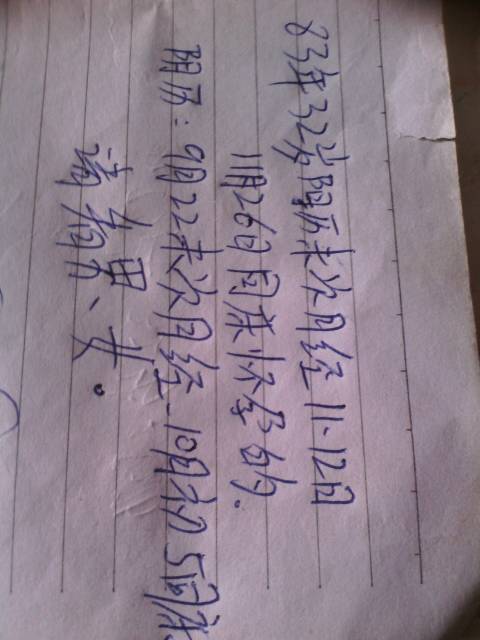 83年32岁阳历末次月经11.12日
11月26日同房怀孕的.
阴历:9月22末次月经-10月初5同房
请看男、女。